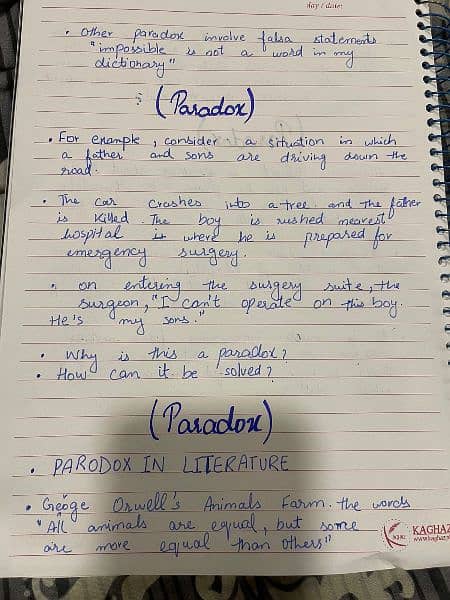 day / date:
• Other paradox involve falsa statements
"impossible is not a word in my
dictionary"
(Paradox)
• For enample, consider a situation in which
a father and sons are driving down the
road.
• The car crashes into a tree and the father
is killed. The boy is rushed nearest
hospital where he is prepared for
emergency surgery.
• on entering the surgery suite, the
surgeon, "I can't operate on this boy.
He's my sons."
• Why is this a paradox?
• How can it be solved?
(Paradox)
• PARODOX IN LITERATURE
• Geoge Orwell's Animals Farm. the words
"All animals are equal, but some
are more equal than others"
KAGHAZ